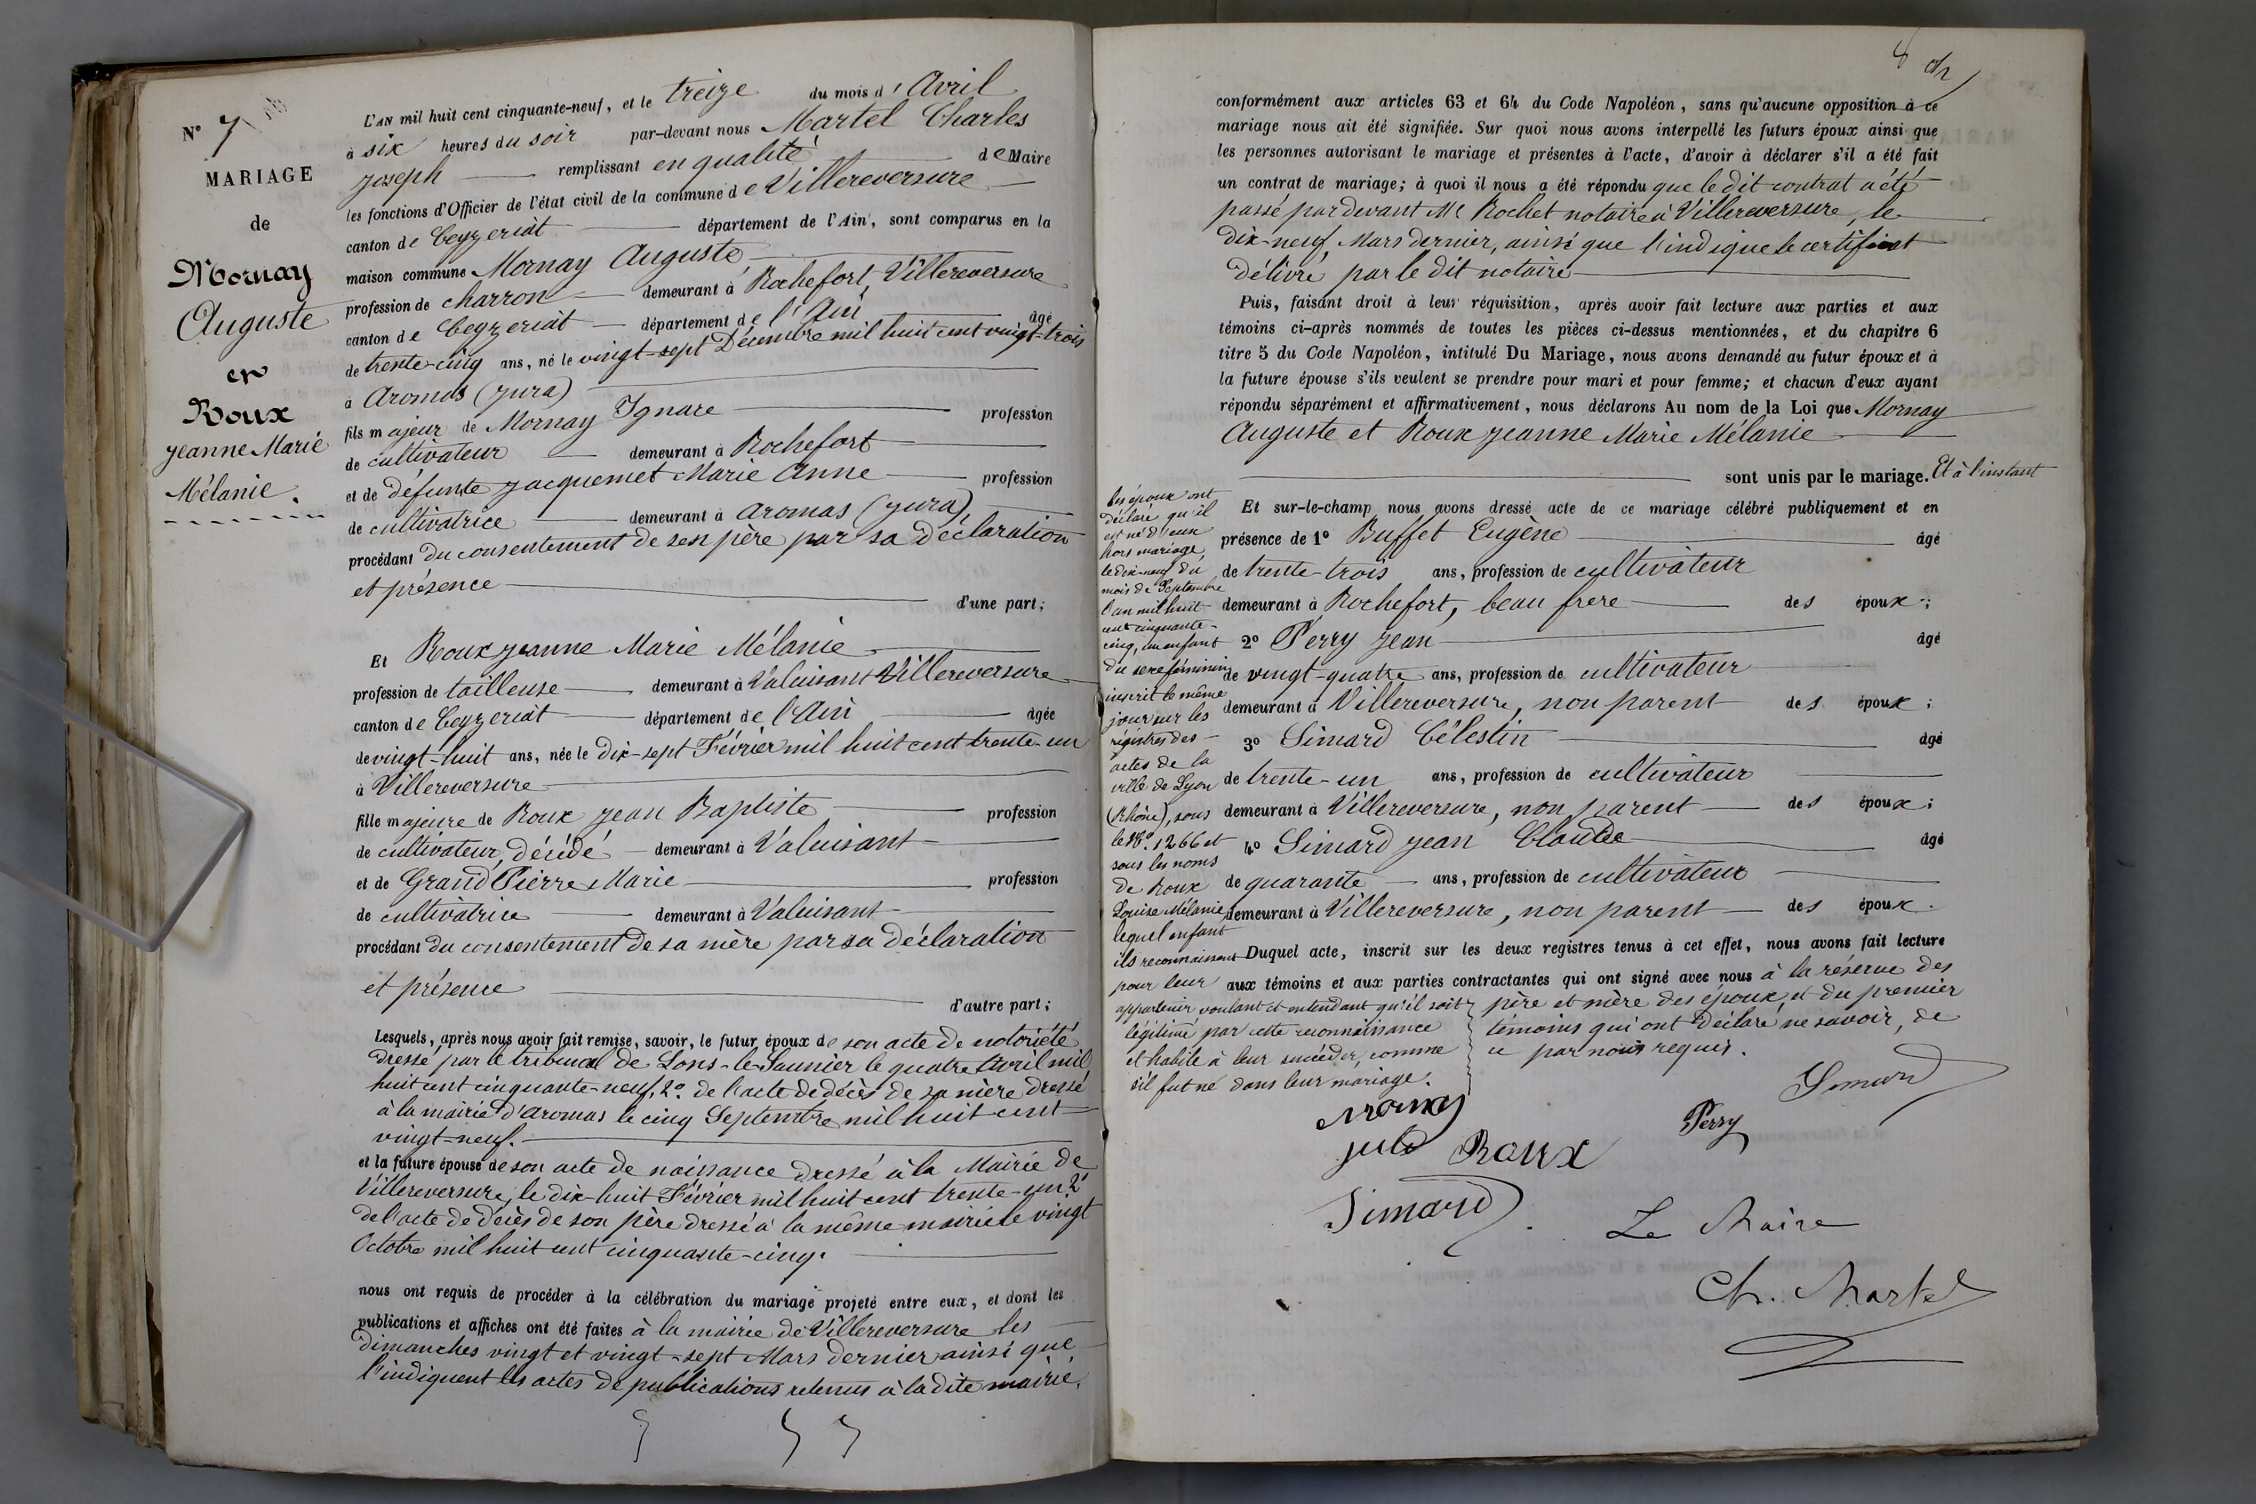 N° 7
MARIAGE
de
Mornay
Auguste
et
Roux
Jeanne Marie
Mélanie.
L'AN mil huit cent cinquante-neuf, et le treize du mois d'Avril
à six heures du soir par-devant nous Martel Charles
Joseph remplissant en qualité de Maire
les fonctions d'Officier de l'état civil de la commune de Villereversure
canton de Ceyzeriat département de l'Ain, sont comparus en la
maison commune Mornay Auguste
profession de charron demeurant à Rochefort, Villereversure
canton de Ceyzeriat département de l'Ain âgé
de trente-cinq ans, né le vingt-sept Décembre mil huit cent vingt-trois
à Aromas (Jura)
fils majeur de Mornay Ignace profession
de cultivateur demeurant à Rochefort
et de défunte Jacquemet Marie Anne profession
de cultivatrice demeurant à Aromas (Jura),
procédant du consentement de son père par sa déclaration
et présence d'une part;
Et Roux Jeanne Marie Mélanie
profession de tailleuse demeurant à Valuisant Villereversure
canton de Ceyzeriat département de l'Ain âgée
de vingt-huit ans, née le dix-sept Février mil huit cent trente-un
à Villereversure
fille majeure de Roux Jean Baptiste profession
de cultivateur, décédé demeurant à Valuisant
et de Grand Pierre Marie profession
de cultivatrice demeurant à Valuisant
procédant du consentement de sa mère par sa déclaration
et présence d'autre part;
Lesquels, après nous avoir fait remise, savoir, le futur époux de son acte de notoriété
dressé par le tribunal de Lons-le-Saunier le quatre Avril mil
huit cent cinquante-neuf, 2° de l'acte de décès de sa mère dressé
à la mairie d'Aromas le cinq Septembre mil huit cent
vingt-neuf.
et la future épouse de son acte de naissance dressé à la Mairie de
Villereversure, le dix-huit Février mil huit cent trente-un 2°
de l'acte de décès de son père dressé à la même mairie le vingt
Octobre mil huit cent cinquante-cinq.
nous ont requis de procéder à la célébration du mariage projeté entre eux, et dont les
publications et affiches ont été faites à la mairie de Villereversure les
dimanches vingt et vingt-sept Mars dernier ainsi que
l'indiquent les actes de publications retenus à la dite mairie,
conformément aux articles 63 et 64 du Code Napoléon, sans qu'aucune opposition à ce
mariage nous ait été signifiée. Sur quoi nous avons interpellé les futurs époux ainsi que
les personnes autorisant le mariage et présentes à l'acte, d'avoir à déclarer s'il a été fait
un contrat de mariage; à quoi il nous a été répondu que le dit contrat a été
passé par devant Me Rochet notaire à Villereversure, le
dix-neuf Mars dernier, ainsi que l'indique le certificat
délivré par le dit notaire
Puis, faisant droit à leur réquisition, après avoir fait lecture aux parties et aux
témoins ci-après nommés de toutes les pièces ci-dessus mentionnées, et du chapitre 6
titre 5 du Code Napoléon, intitulé Du Mariage, nous avons demandé au futur époux et à
la future épouse s'ils veulent se prendre pour mari et pour femme; et chacun d'eux ayant
répondu séparément et affirmativement, nous déclarons Au nom de la Loi que Mornay
Auguste et Roux Jeanne Marie Mélanie
sont unis par le mariage. Et à l'instant
les époux ont
déclaré qu'il
est né d'eux
hors mariage,
le dix-neuf du
mois de Septembre
l'an mil huit
cent cinquante-
cinq, un enfant
du sexe féminin
inscrit le même
jour sur les
régistres des
actes de la
ville de Lyon
(Rhône), sous
le N°. 1266 et
sous les noms
de Roux
Louise Mélanie,
lequel enfant
ils reconnaissent
pour leur
appartenir voulant et entendant qu'il soit
légitimé par cette reconnaissance
et habile à leur succéder, comme
s'il fut né dans leur mariage.
Et sur-le-champ nous avons dressé acte de ce mariage célébré publiquement et en
présence de 1° Buffet Eugène âgé
de trente-trois ans, profession de cultivateur
demeurant à Rochefort, beau frere des époux;
2° Perry Jean âgé
de vingt-quatre ans, profession de cultivateur
demeurant à Villereversure, non parent des époux;
3° Simard Célestin âgé
de trente-un ans, profession de cultivateur
demeurant à Villereversure, non parent des époux;
4° Simard Jean Claude âgé
de quarante ans, profession de cultivateur
demeurant à Villereversure, non parent des époux.
Duquel acte, inscrit sur les deux registres tenus à cet effet, nous avons fait lecture
aux témoins et aux parties contractantes qui ont signé avec nous à la réserve des
père et mère des époux, et du premier
témoins qui ont déclaré ne savoir, de
ce par nous requis.
Simard
Mornay
Perry
Roux
Simard
Le Maire
Ch. Martel